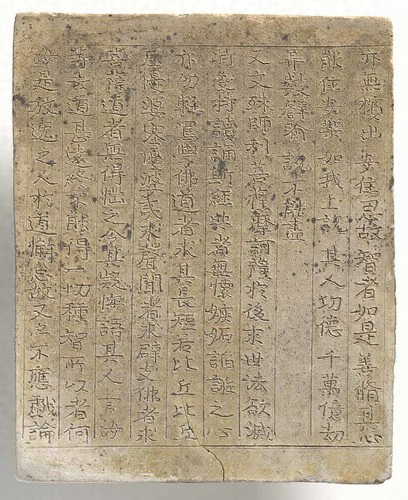 亦無擯出 安住忍故 智者如是 善脩其心
能住安樂 如我上說 其人功德 千萬億劫
算數譬喻 說不能盡
又文殊師利菩薩摩訶薩於後末世法欲滅
時受持讀誦斯經典者無懷嫉妬諂誑之心
亦勿輕罵學佛道者求其長短若比丘比丘
尼優婆塞優婆夷求聲聞者求辟支佛者求
菩薩道者無得惱之令其疑悔語其人言汝
等去道甚遠終不能得一切種智所以者何
汝是放逸之人於道懈怠故又亦不應戲論